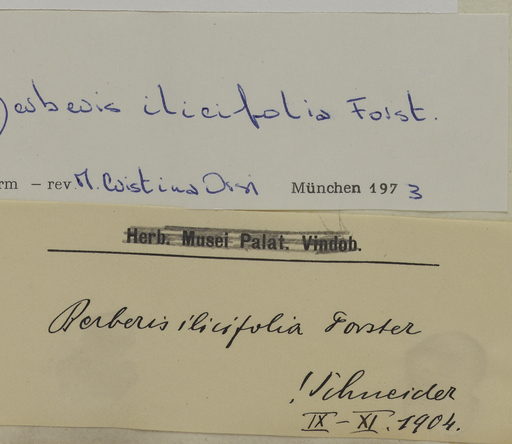 Berberis ilicifolia Forst.
rm – rev. M. Cristina Orsi München 1973
Herb. Musei Palat. Vindob.
Berberis ilicifolia Forster
! Schneider
IX – XI. 1904.